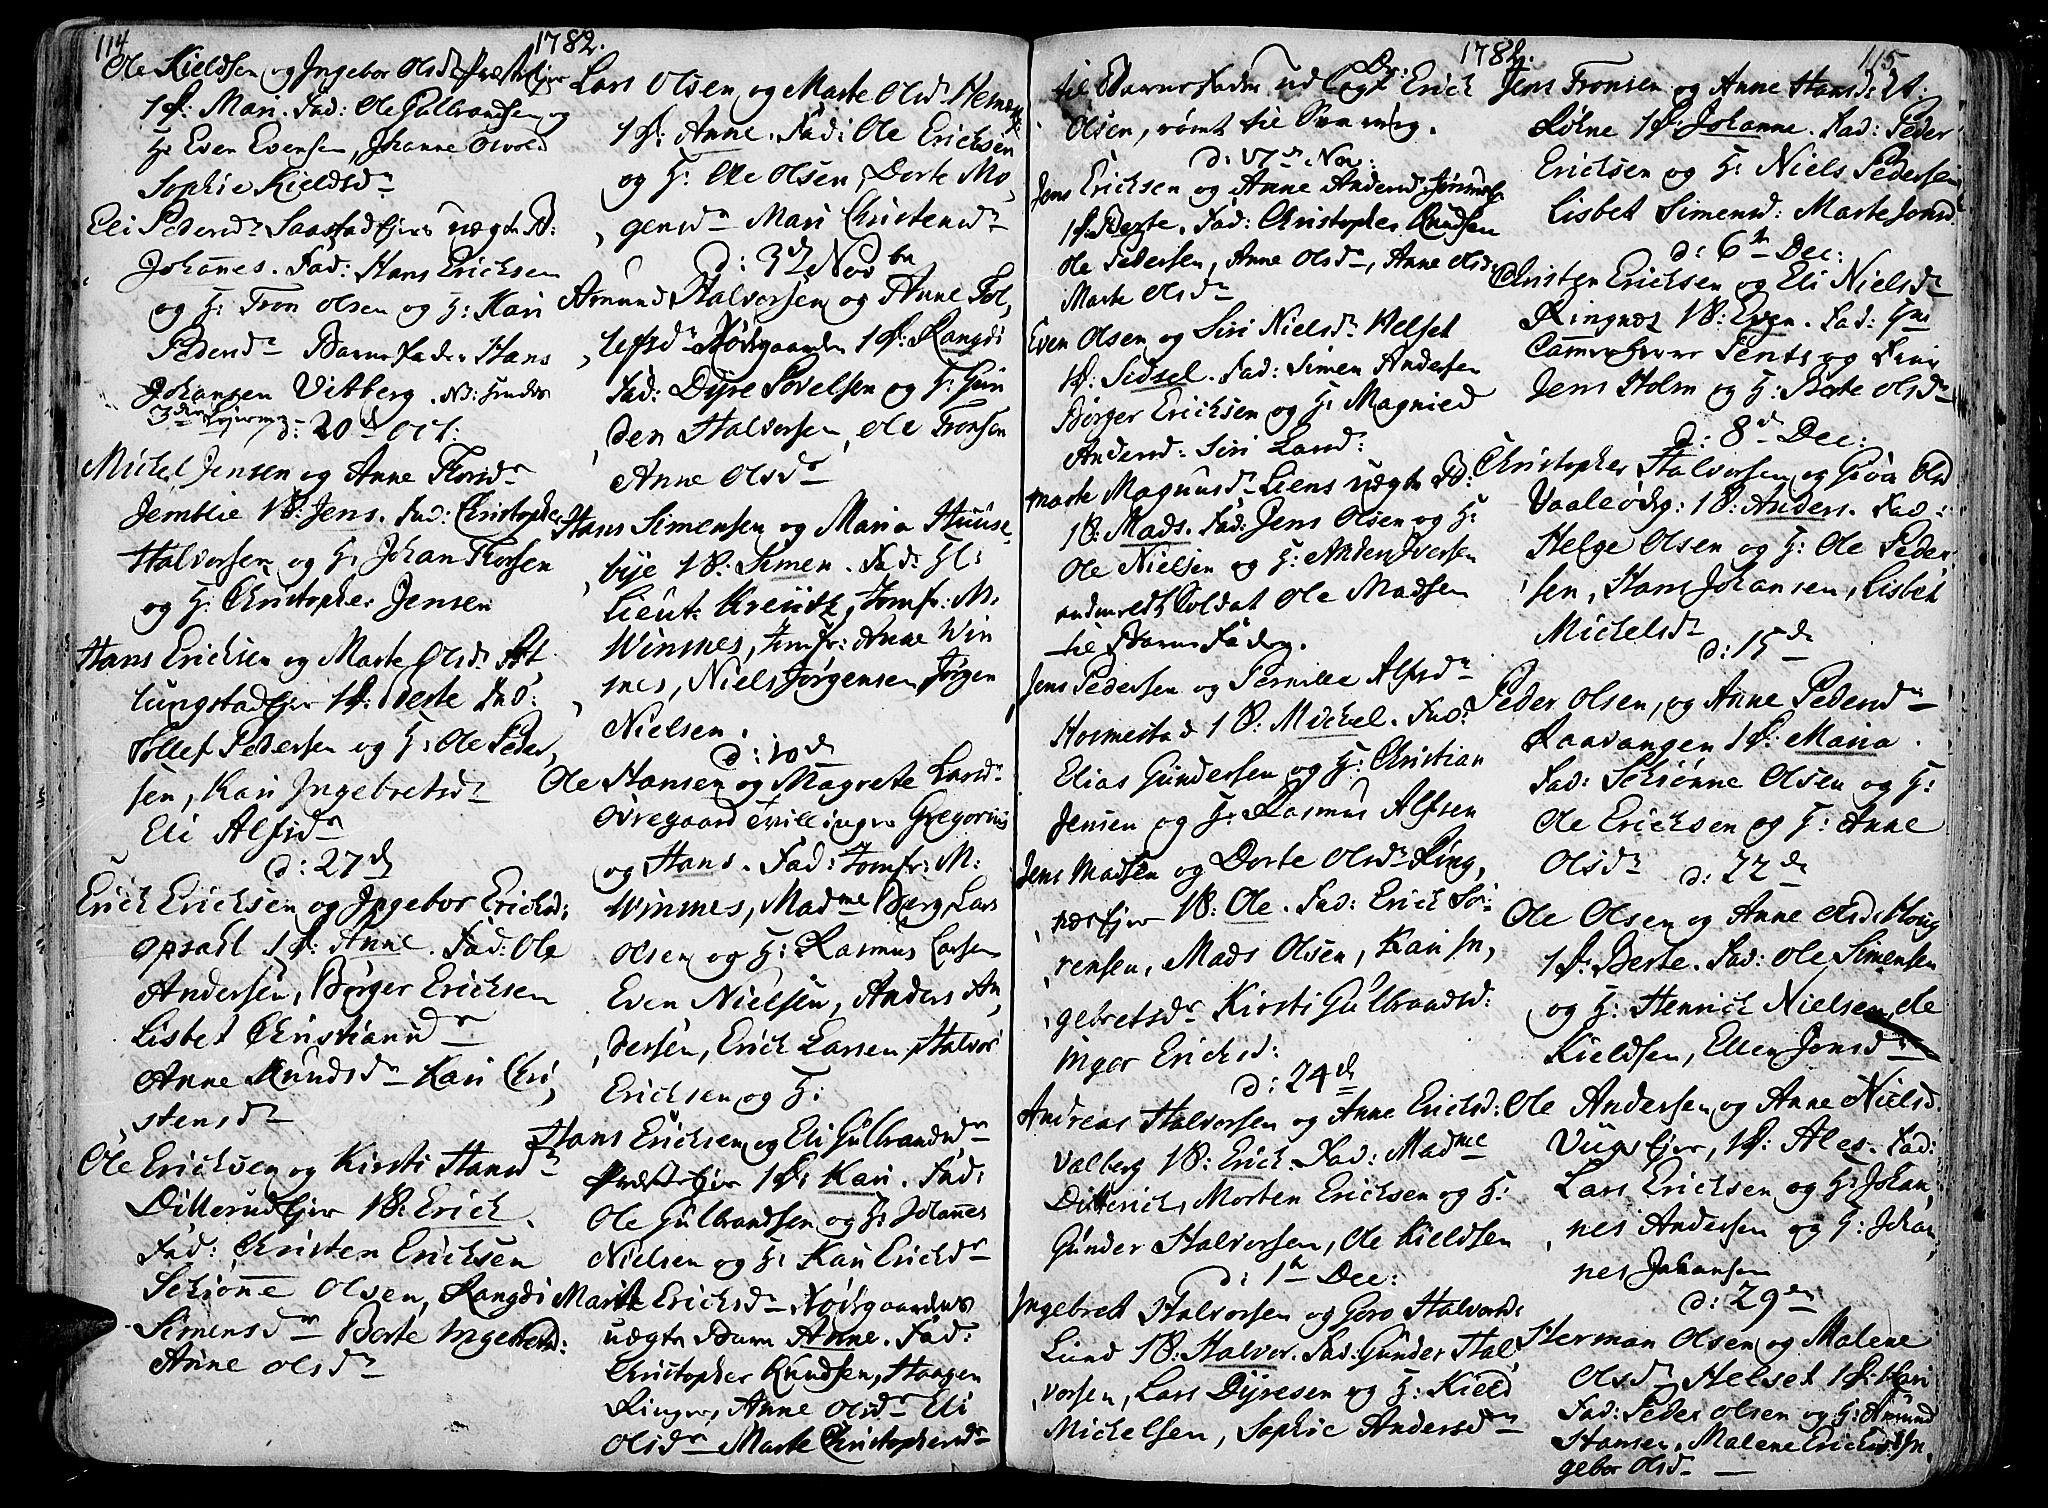 114
1782.
Ole Kieldsen og Ingebor Olsdr Præsteejer
1 P: Mari. Fad: Ole Gulbrandsen og
H: Even Evensen, Johanne
Sophie Kieldsdr
Eli Pedersdr Saastadejer uægte B:
Johannes. Fad: Hans Erichsen
og H: Tron Olsen og H: Kari
Pedersdr Barnefader Hans
Johansen Vitberg. NB: hendes
3die
d: 20de Oct:
Michel Jensen og Anne Thorsdr
Jemblie 1 B: Jens. Fad: Christopher
Halvorsen og H: Johan Thorsen
og H: Christopher Jensen
Hans Erichsen og Marte Olsdr At
lungstadejer 1 P: Berte Fad:
Tollef Pedersen og H: Ole Peder,
sen, Kari Ingebretsdr
Eli Alfsdr
d: 27de
Erich Erichsen og Ingebor Erichsd:
Opsahl 1 P: Anne. Fad: Ole
Andersen, Børger Erichsen
Lisbet Christiansdr
Anne Knudsdr Kari Chri,
stensdr
Ole Erichsen og Kirsti Hansdr
Dillerudejer 1 B: Erich.
Fad: Christen Erichsen
Schiønne Olsen, Rangdi
Simensdr Berte Ingebretsd:
Anne Olsdr
Lars Olsen og Marte Olsdr
1 P: Anne. Fad: Ole Erichsen
og H: Ole Olsen, Dorte Mo,
gensdr Mari Christensdr
d: 3de Novbr
Amund Halvorsen og Anne Tol,
lefsdr Nordgaarden 1 P: Rangdi
Fad: Dyre Povelsen og H: Gun
der Halvorsen, Ole Tronsen
Anne Olsdr
Hans Simensen og Maria Huuse,
bye 1 B: Simen. Fad: Hl:
Lieut: Kreütz, Jomfr: M:
Winsnes, Jomfr: Anne Win
snes, Niels Jørgensen, Jørgen
Nielsen.
d: 10de
Ole Hansen og Magrete Larsdr
Øvregaard Tvillinger Gregorius
og Hans. Fad: Jomfr: M:
Winsnes, Madme Berg, Lars
Olsen og H: Rasmus Larsen
Even Nielsen, Anders An,
dersen, Erich Larsen, Halvor
Erichsen og H:
Hans Erichsen og Eli Gulbrandsdr
Præsteejer 1 P: Kari. Fad:
Ole Gulbrandsen og H: Johannes
Nielsen og H: Kari Erichsdr
Marit Erichsdr Nordgaardens
uægte Barn Anne. Fad:
Christopher Knudsen, Haagen
Ringer, Anne Olsdr Eli
Olsdr Marte Christophersdr
1782.
115
til Barnefader udlagt Erich
Olsen, rømt til Sverrig.
d: 17de Nov:
Jens Erichsen og Anne Andersd:
1 P: Berte. Fad: Christopher Knudsen
Ole Pedersen, Anne Olsdr, Anne Olsdr
Marte Olsdr
Even Olsen og Siri Nielsdr Helset
1 P: Sidsel. Fad: Simen Andersen
Børger Erichsen og H: Magnild
Andersd: Siri Larsd:
Marte Magnusdr Liens uægte B:
1 B: Mads. Fad: Jens Olsen og H:
Ole Nielsen og H: Anders Iversen
Soldat Ole Madsen
til Barnefader.
Jens Pedersen og Pernille Alfsdr
Hosmestad 1 B: Michel. Fad:
Elias Gundersen og H: Christian
Jensen og H: Rasmus Alfsen
Jens Madsen og Dorte Olsdr Ring,
næsejer 1 B: Ole. Fad: Erich Sø,
rensen, Mads Olsen, Kari In,
gebretsdr Kirsti Gulbrandsd:
Inger Erichsd:
d: 24de
Andreas Halvorsen og Anne Erichsd:
Valberg 1 B: Erich. Fad: Madme
Ditterich, Morten Erichsen og H:
Gunder Halvorsen, Ole Kieldsen
d: 1te Dec:
Ingebret Halvorsen og Goro Halvorsd:
Lund 1 B: Halvor. Fad: Gunder Hal,
vorsen, Lars Dyresen og H: Kield
Michelsen, Sophie Andersdr
Jens Tronsen og Anne Hansd:
Løkne 1 P: Johanne. Fad: Peder
Erichsen og H: Niels Pedersen
Lisbet Simensd: Marte Jonsd:
d: 6te Dec:
Christen Erichsen og Eli Nielsdr
Ringnes 1 B: Even. Fad: Hr:
og
Jens Holm og H: Berte Olsdr
d: 8de Dec:
Christopher Halvorsen og Goro Olsd
Vaaleødeg: 1 B: Anders. Fad:
Helge Olsen og H: Ole Peder
sen, Hans Johansen, Lisbet
Michelsdr
d: 15de
Peder Olsen, og Anne Pedersdr
Raavangen 1 P: Maria.
Fad: Schiønne Olsen og H:
Ole Erichsen og H: Anne
Olsdr
d: 22de
Ole Olsen og Anne Olsdr Houg
1 P: Berte. Fad: Ole Simensen
og H: Henrich Nielsen, Ole
Kieldsen, Ellen Jonsdr
Ole Andersen og Anne Nielsd:
1 P: Ales. Fad:
Lars Erichsen og H: Johan,
nes Andersen og H: Johan,
nes Johansen
d: 29de
Herman Olsen og Malene
Olsdr Helset 1 P: Kari
Fad: Peder Olsen og H: Amund
Hansen, Malene Erichsd: In,
gebor Olsdr